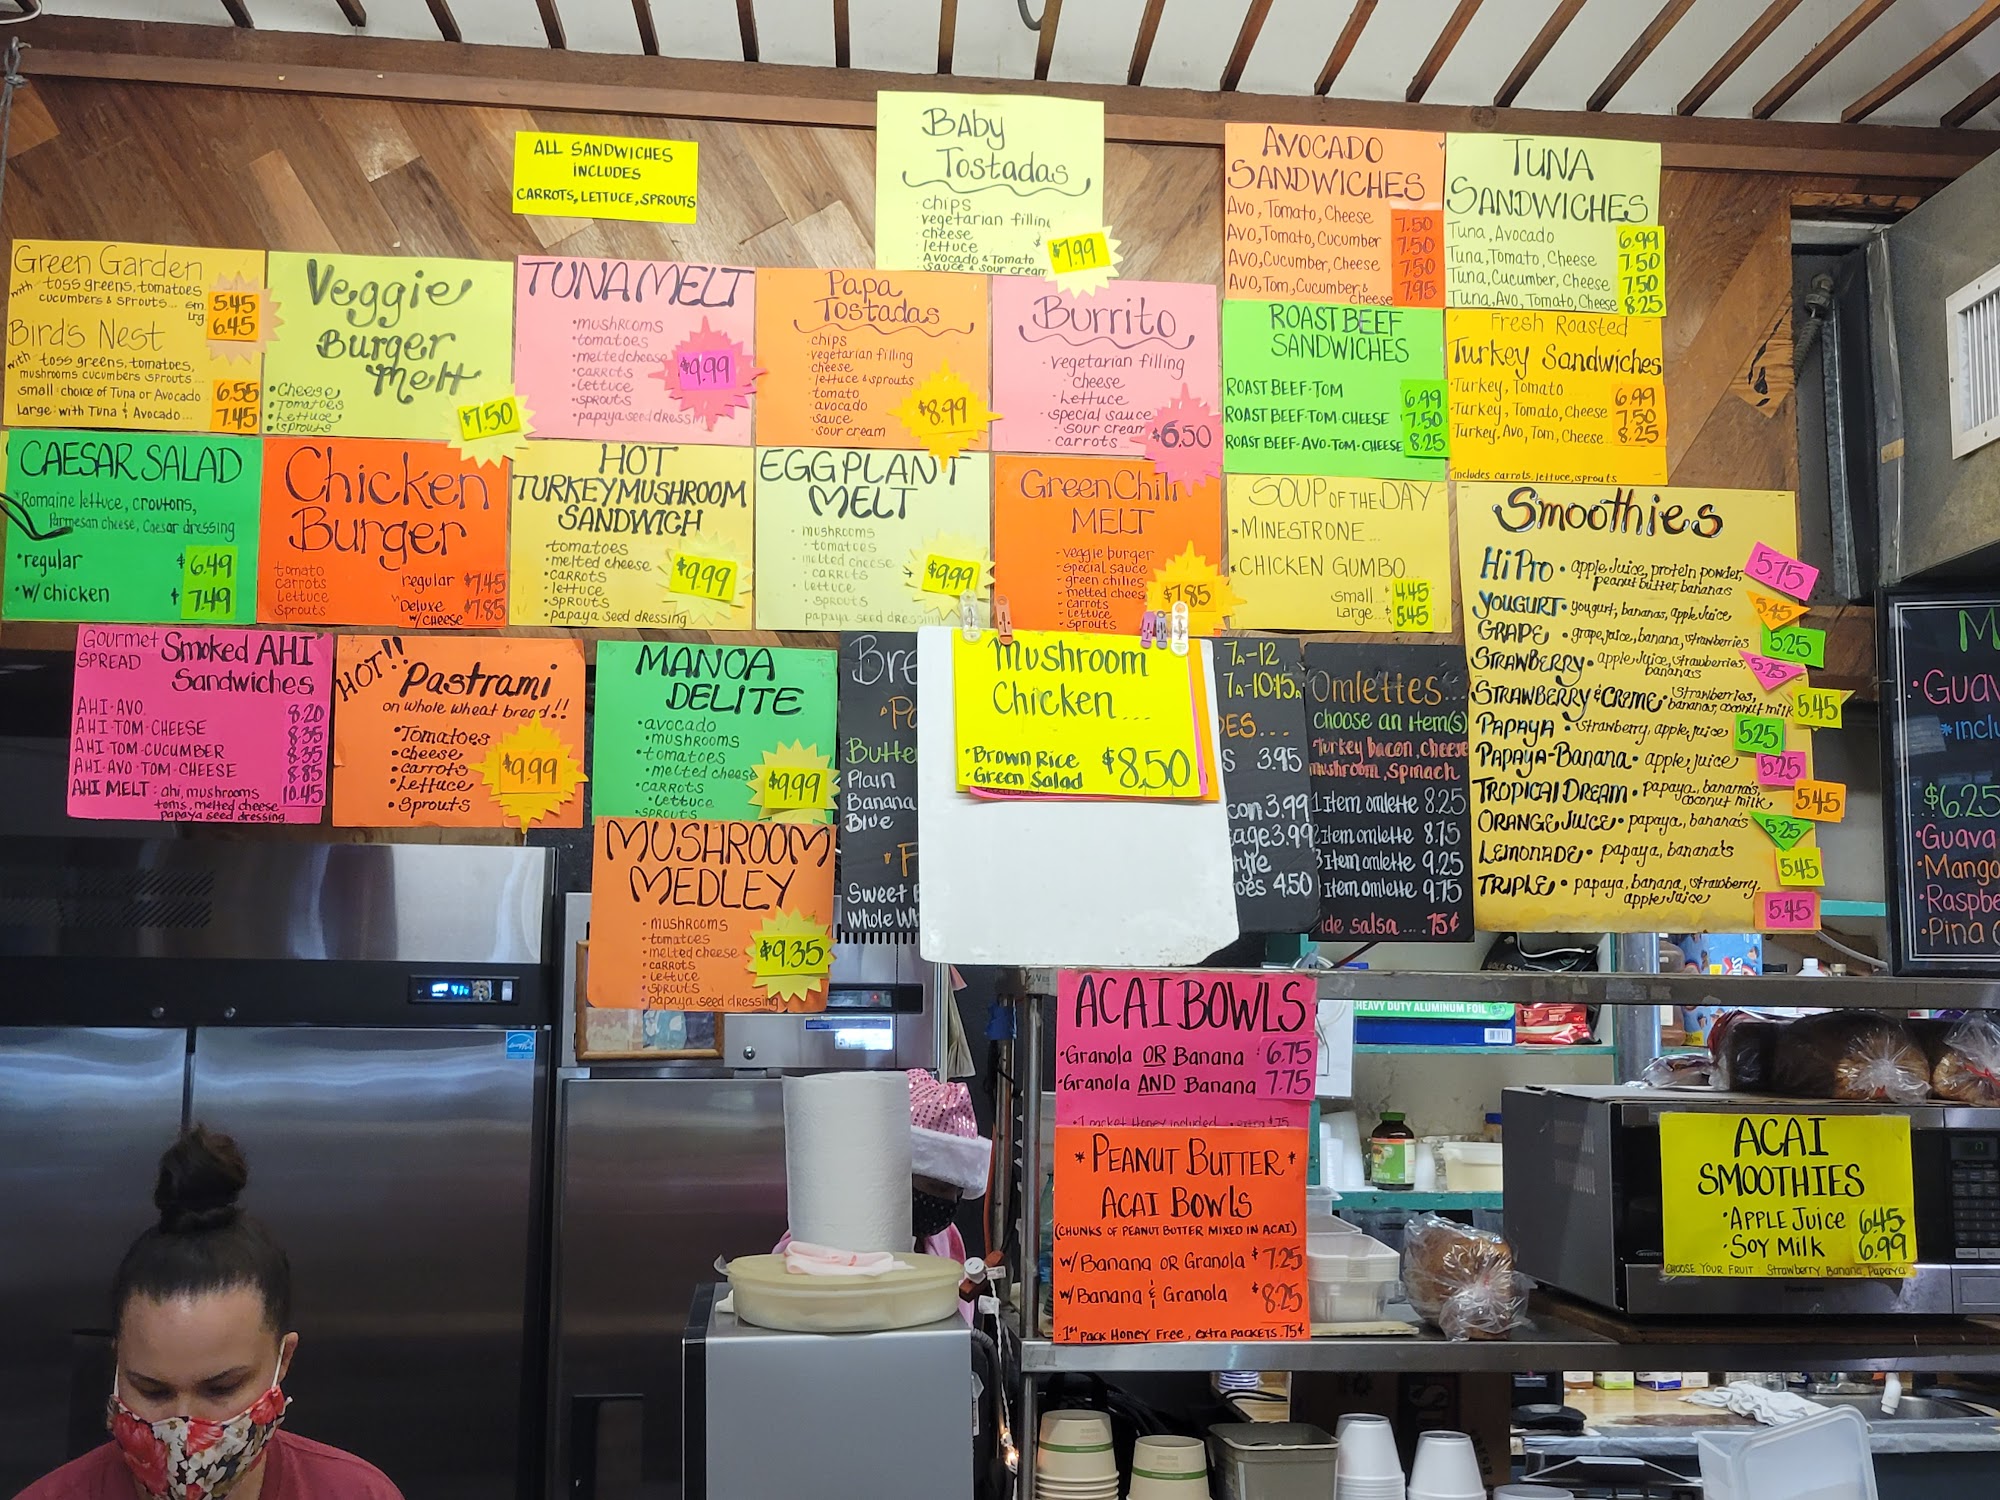 ALL SANDWICHES
INCLUDES
CARROTS, LETTUCE, SPROUTS
Baby
Tostadas
• chips
• vegetarian filling
• cheese
• lettuce
Avocado & Tomato
sauce & sour cream
$7.99
AVOCADO
SANDWICHES
Avo, Tomato, Cheese 7.50
Avo, Tomato, Cucumber 7.50
Avo, Cucumber, Cheese 7.50
Avo, Tom, Cucumber & cheese 7.95
TUNA
SANDWICHES
Tuna, Avocado 6.99
Tuna, Tomato, Cheese 7.50
Tuna, Cucumber, Cheese 7.50
Tuna, Avo, Tomato, Cheese 8.25
Green Garden
with toss greens, tomatoes
cucumbers & sprouts... sm. 5.45
Lrg. 6.45
Bird's Nest
with toss greens, tomatoes,
mushrooms cucumbers sprouts...
small: choice of Tuna or Avocado 6.55
Large: with Tuna & Avocado... 7.45
Veggie
Burger
Melt
• Cheese
• Tomatoes
• Lettuce
• sprouts
$7.50
TUNA MELT
• mushrooms
• tomatoes
• melted cheese
• carrots
• lettuce
• sprouts
• papaya seed dressing
$9.99
Papa
Tostadas
• chips
• vegetarian filling
• cheese
• lettuce & sprouts
• tomato
• avocado
• sauce
• sour cream
$8.99
Burrito
• vegetarian filling
• cheese
• Lettuce
• special sauce
• sour cream
• carrots
$6.50
ROAST BEEF
SANDWICHES
ROAST BEEF-TOM 6.99
ROAST BEEF-TOM-CHEESE 7.50
ROAST BEEF-AVO-TOM-CHEESE 8.25
Fresh Roasted
Turkey Sandwiches
• Turkey, Tomato 6.99
• Turkey, Tomato, Cheese 7.50
• Turkey, Avo, Tom, Cheese 8.25
includes carrots, lettuce, sprouts
CAESAR SALAD
• Romaine lettuce, croutons,
Parmesan cheese, Caesar dressing
• regular $6.49
• w/chicken $7.49
Chicken
Burger
tomato
carrots
lettuce
sprouts
regular $7.45
Deluxe
w/cheese $7.85
HOT
TURKEY MUSHROOM
SANDWICH
• tomatoes
• melted cheese
• carrots
• lettuce
• sprouts
• papaya seed dressing
$9.99
EGGPLANT
MELT
• mushrooms
• tomatoes
• melted cheese
• carrots
• lettuce
• sprouts
papaya seed dressing
$9.99
Green Chili
MELT
- veggie burger
- special sauce
- green chilies
- melted cheese
- carrots
- lettuce
- sprouts
$7.85
SOUP OF THE DAY
• MINESTRONE...
• CHICKEN GUMBO
small... $4.45
Large... $5.45
Smoothies
Hi Pro • apple juice, protein powder,
peanut butter, bananas 5.75
YOUGURT • yougurt, bananas, apple juice 5.45
GRAPE • grape juice, banana, strawberries 5.25
STRAWBERRY • apple juice, strawberries,
bananas 5.25
STRAWBERRY & CREME • strawberries,
bananas, coconut milk 5.45
PAPAYA • strawberry, apple juice 5.25
PAPAYA-BANANA • apple juice 5.25
TROPICAL DREAM • papaya, banana's,
coconut milk 5.45
ORANGE JUICE • papaya, banana's 5.25
LEMONADE • papaya, banana's 5.45
TRIPLE • papaya, banana, strawberry,
apple juice 5.45
Gourmet
SPREAD
Smoked AHI
Sandwiches
AHI-AVO. 8.20
AHI-TOM-CHEESE 8.35
AHI-TOM-CUCUMBER 8.35
AHI-AVO-TOM-CHEESE 8.85
AHI MELT: ahi, mushrooms 10.45
toms, melted cheese
papaya seed dressing
HOT!!
Pastrami
on whole wheat bread!!
• Tomatoes
• cheese
• carrots
• Lettuce
• Sprouts
$9.99
MANOA
DELITE
• avocado
• mushrooms
• tomatoes
• melted cheese
• carrots
• lettuce
• sprouts
$9.99
Bre
Butte
Plain
Banana
Blue
Sweet
Whole Wh
Mushroom
Chicken...
• Brown Rice
• Green Salad
$8.50
7A-12
7A-10:15A
3.95
3.99
3.99
4.50
Omlettes...
choose an item(s)
Turkey bacon, cheese
mushroom, spinach
1 Item omlette 8.25
2 Item omlette 8.75
3 Item omlette 9.25
Item omlette 9.75
salsa.... .75¢
MUSHROOM
MEDLEY
• mushrooms
• tomatoes
• melted cheese
• carrots
• lettuce
• sprouts
• papaya seed dressing
$9.35
Guav
*inclu
$6.25
• Guava
• Mango
• Raspbe
• Pina
HEAVY DUTY ALUMINUM FOIL
ACAI BOWLS
• Granola OR Banana 6.75
• Granola AND Banana 7.75
• 1 packet Honey included
* PEANUT BUTTER *
ACAI BOWLS
(CHUNKS OF PEANUT BUTTER MIXED IN ACAI)
w/Banana OR Granola $7.25
w/Banana & Granola $8.25
• 1st PACK Honey Free, extra PACKETS .75¢
ACAI
SMOOTHIES
• APPLE Juice 6.45
• SOY Milk 6.99
CHOOSE YOUR FRUIT: Strawberry, Banana, Papaya